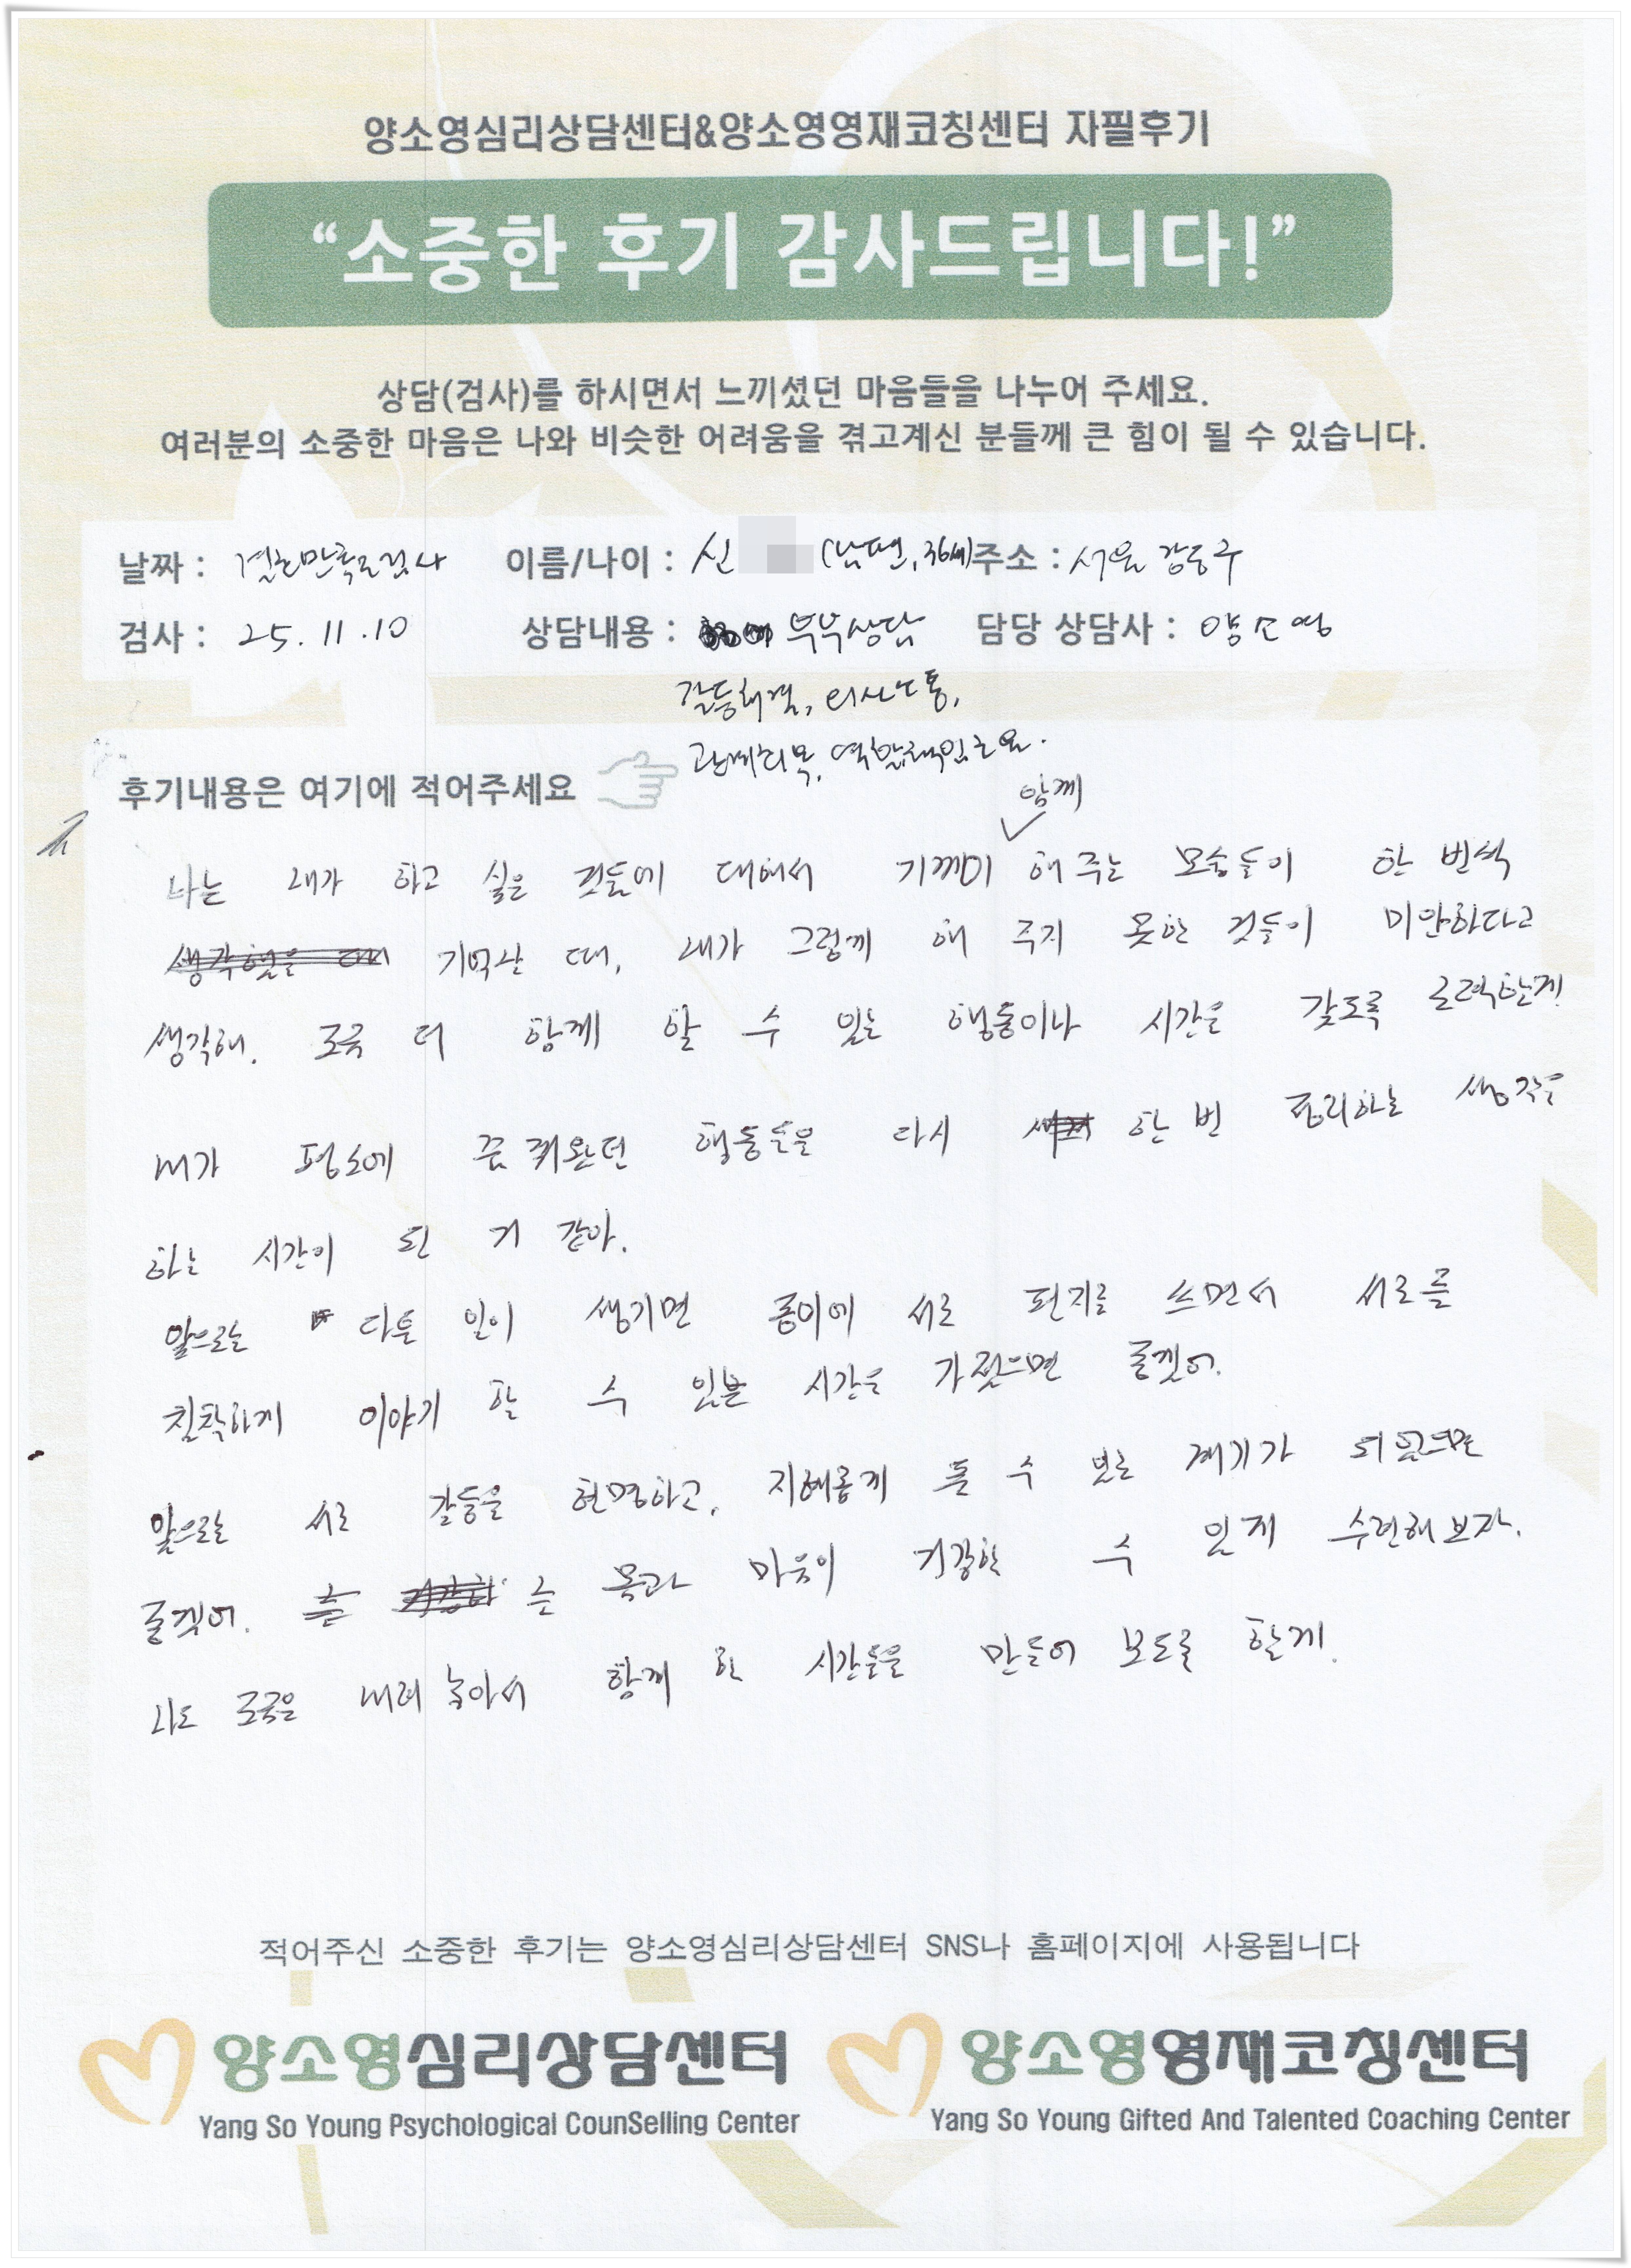 양소영심리상담센터&양소영영재코칭센터 자필후기
“소중한 후기 감사드립니다!”
상담(검사)를 하시면서 느끼셨던 마음들을 나누어 주세요.
여러분의 소중한 마음은 나와 비슷한 어려움을 겪고계신 분들께 큰 힘이 될 수 있습니다.
날짜 : 결혼만족도검사 이름/나이 : 신 (남편, 36세) 주소 : 서울 강동구
검사 : 25. 11. 10 상담내용 : 부부상담 담당 상담사 : 양소영
갈등해결, 의사소통,
관계회복, 역할책임
후기내용은 여기에 적어주세요
함께
나는 내가 하고 싶은 것들에 대해서 기꺼이 해 주는 모습들이 한 번씩
기억날 때, 내가 그렇게 해 주지 못한 것들이 미안하다고
생각해. 조금 더 함께 할 수 있는 행동이나 시간을 갖도록 노력할게.
내가 평소에 행동들을 다시 한 번 정리하는 생각을
하는 시간이 된 거 같아.
앞으로는 다툴 일이 생기면 종이에 서로 편지를 쓰면서 서로를
침착하게 이야기 할 수 있는 시간을 가졌으면 좋겠어.
앞으로는 서로 갈등을 현명하고, 지혜롭게 풀 수 있는 계기가 되었으면
좋겠어. 몸과 마음이 건강할 수 있게 수련해보자.
나도 조금은 내려 놓아서 함께 한 시간들을 만들어 보도록 할게.
적어주신 소중한 후기는 양소영심리상담센터 SNS나 홈페이지에 사용됩니다
양소영심리상담센터 양소영영재코칭센터
Yang So Young Psychological CounSelling Center Yang So Young Gifted And Talented Coaching Center